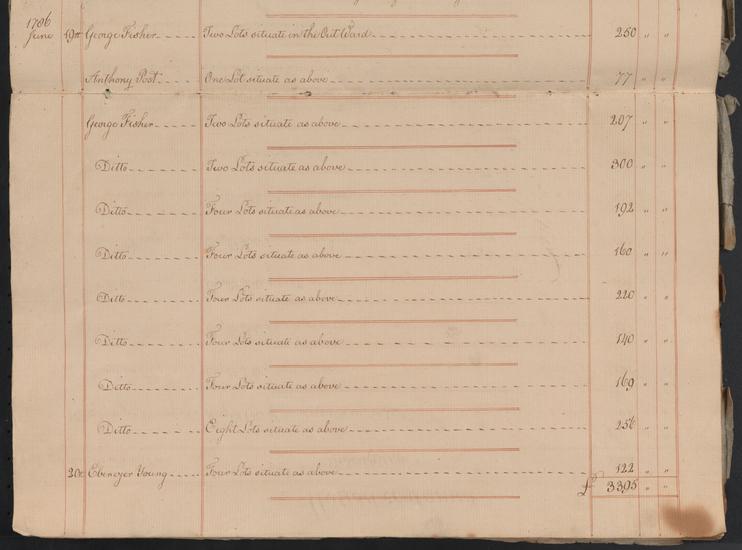 1786
June 19th George Fisher Two Lots situate in the Out Ward 250 " "
Anthony Post One Lot situate as above 77 " "
George Fisher Two Lots situate as above 207 " "
Ditto Two Lots situate as above 300 " "
Ditto Four Lots situate as above 192 " "
Ditto Four Lots situate as above 160 " "
Ditto Four Lots situate as above 220 " "
Ditto Four Lots situate as above 140 " "
Ditto Four Lots situate as above 169 " "
Ditto Eight Lots situate as above 256 " "
20th Ebenezer Young Four Lots situate as above 122 " "
£ 3395 " "